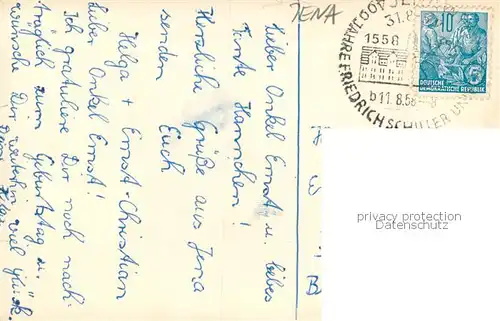 Lieber Onkel Ernst u. liebes
Tante Hannchen!
Herzliche Grüße aus Jena
senden Euch
Helga + Ernst-Christian
Lieber Onkel Ernst!
Ich gratuliere Dir noch nach-
träglich zum Geburtstag u.
wünsche Dir weiterhin viel Glück.
JENA
400 JAHRE FRIEDRICH SCHILLER UN
31.8
1558
b11.8.58
10
DEUTSCHE
DEMOKRATISCHE REPUBLIK
privacy protection
Datenschutz
B